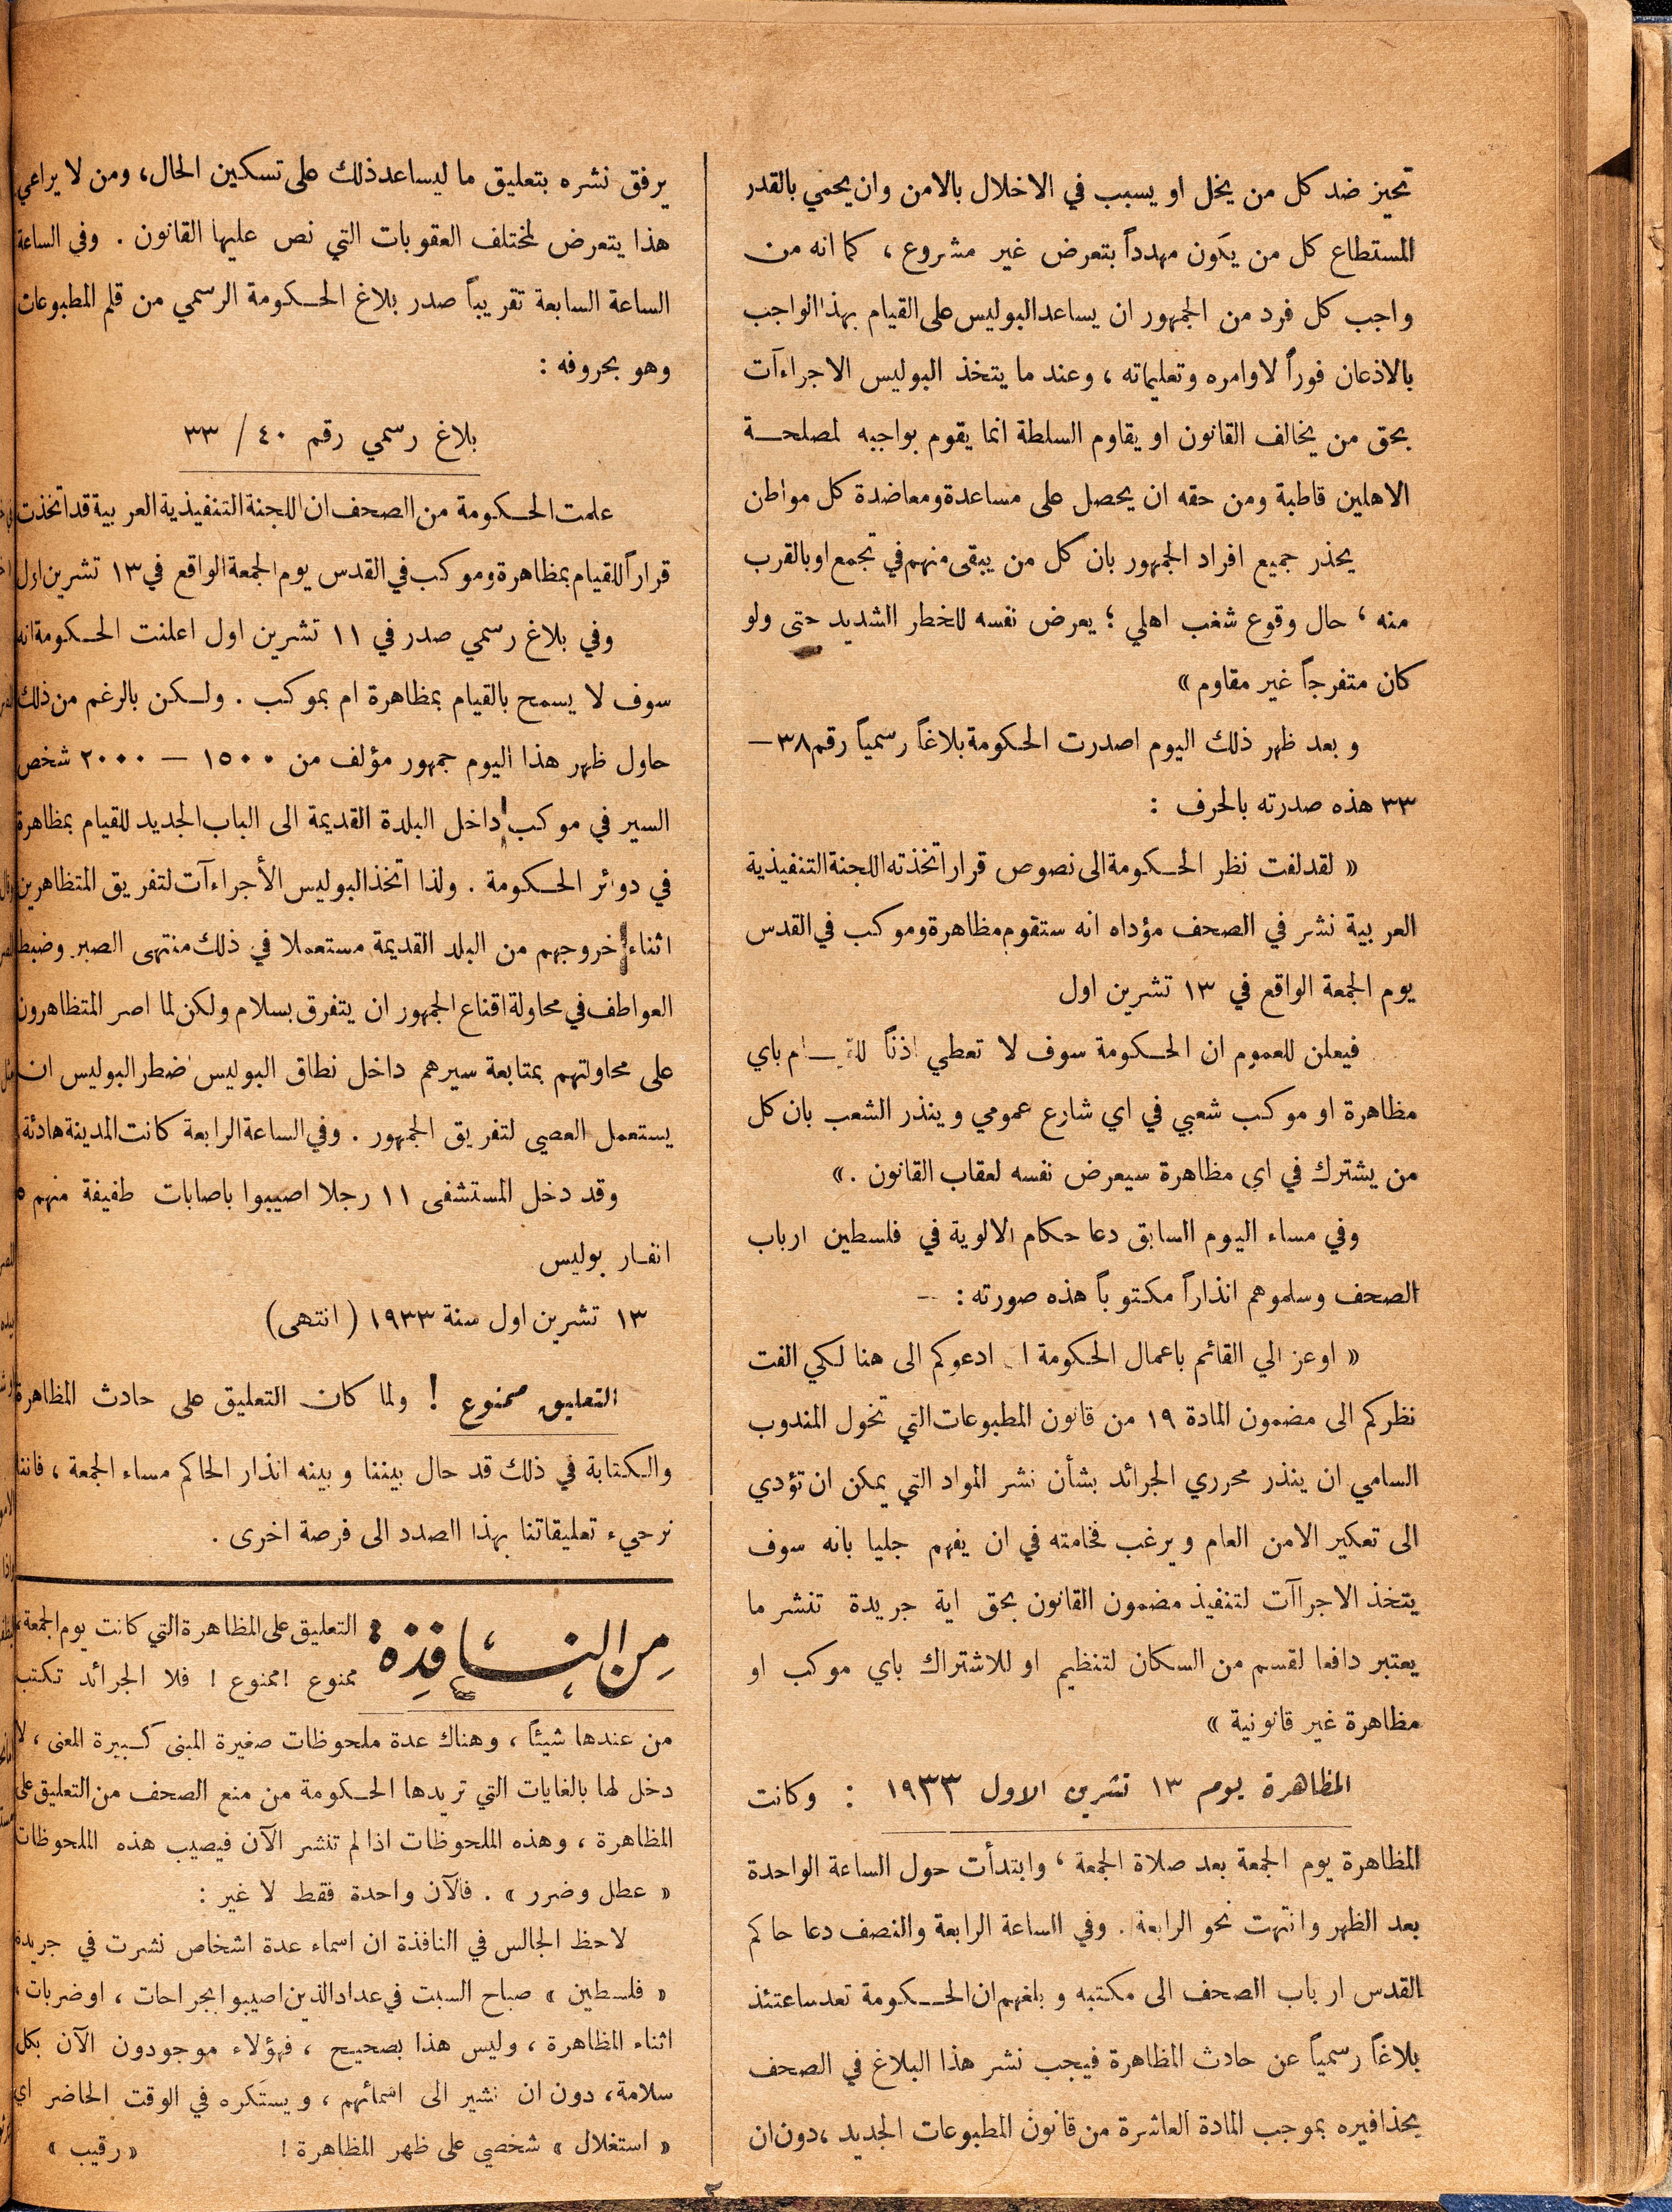 تحيز ضد كل من يخل او يسبب في الاخلال بالامن وان يحمي بالقدر
المستطاع كل من يكون مهدداً بتعرض غير مشروع ، كما انه من
واجب كل فرد من الجمهور ان يساعد البوليس على القيام بهذا الواجب
بالاذعان فوراً لاوامره وتعليماته ، وعند ما يتخذ البوليس الاجراءآت
بحق من يخالف القانون او يقاوم السلطة انما يقوم بواجبه لمصلحة
الاهلين قاطبة ومن حقه ان يحصل على مساعدة ومعاضدة كل مواطن
يحذر جميع افراد الجمهور بان كل من يبقى منهم في تجمع او بالقرب
منه ، حال وقوع شغب اهلي ؛ يعرض نفسه للخطر الشديد حتى ولو
كان متفرجاً غير مقاوم »
و بعد ظهر ذلك اليوم اصدرت الحكومة بلاغاً رسمياً رقم ٣٨ —
٣٣ هذه صدرته بالحرف :
« لقد لفت نظر الحكومة الى نصوص قرار اتخذته اللجنة التنفيذية
العربية نشر في الصحف مؤداه انه ستقوم مظاهرة وموكب في القدس
يوم الجمعة الواقع في ١٣ تشرين اول
فيعلن للعموم ان الحكومة سوف لا تعطي اذنًا للقيام باي
مظاهرة او موكب شعبي في اي شارع عمومي وينذر الشعب بان كل
من يشترك في اي مظاهرة سيعرض نفسه لعقاب القانون . »
وفي مساء اليوم السابق دعا حكام الالوية في فلسطين ارباب
الصحف وسلموهم انذاراً مكتوباً هذه صورته : —
« اوعز الي القائم باعمال الحكومة ان ادعوكم الى هنا لكي الفت
نظركم الى مضمون المادة ١٩ من قانون المطبوعات التي تخول المندوب
السامي ان ينذر محرري الجرائد بشأن نشر المواد التي يمكن ان تؤدي
الى تعكير الامن العام ويرغب فخامته في ان يفهم جليا بانه سوف
يتخذ الاجراآت لتنفيذ مضمون القانون بحق اية جريدة تنشر ما
يعتبر دافعا لقسم من السكان لتنظيم او للاشتراك باي موكب او
مظاهرة غير قانونية »
المظاهرة يوم ١٣ تشرين الاول ١٩٣٣ : وكانت
المظاهرة يوم الجمعة بعد صلاة الجمعة ، وابتدأت حول الساعة الواحدة
بعد الظهر وانتهت نحو الرابعة . وفي الساعة الرابعة والنصف دعا حاكم
القدس ارباب الصحف الى مكتبه وبلغهم ان الحكومة تعد ساعتئذ
بلاغاً رسمياً عن حادث المظاهرة فيجب نشر هذا البلاغ في الصحف
بحذافيره بموجب المادة العاشرة من قانون المطبوعات الجديد ، دون ان
يرفق نشره بتعليق ما ليساعد ذلك على تسكين الحال ، ومن لا يراعي
هذا يتعرض لمختلف العقوبات التي نص عليها القانون . وفي الساعة
الساعة السابعة تقريباً صدر بلاغ الحكومة الرسمي من قلم المطبوعات
وهو بحروفه :
بلاغ رسمي رقم ٤٠ / ٣٣
علمت الحكومة من الصحف ان اللجنة التنفيذية العربية قد اتخذت
قراراً للقيام بمظاهرة وموكب في القدس يوم الجمعة الواقع في ١٣ تشرين اول
وفي بلاغ رسمي صدر في ١١ تشرين اول اعلنت الحكومة انه
سوف لا يسمح بالقيام بمظاهرة ام بموكب . ولكن بالرغم من ذلك
حاول ظهر هذا اليوم جمهور مؤلف من ١٥٠٠ — ٢٠٠٠ شخص
السير في موكب داخل البلدة القديمة الى الباب الجديد للقيام بمظاهرة
في دوائر الحكومة . ولذا اتخذ البوليس الأجراءآت لتفريق المتظاهرين
اثناء خروجهم من البلد القديمة مستعملا في ذلك منتهى الصبر وضبط
العواطف في محاولة اقناع الجمهور ان يتفرق بسلام ولكن لما اصر المتظاهرون
على محاولتهم بمتابعة سيرهم داخل نطاق البوليس اضطر البوليس ان
يستعمل العصي لتفريق الجمهور . وفي الساعة الرابعة كانت المدينة هادئة
وقد دخل المستشفى ١١ رجلا اصيبوا باصابات طفيفة منهم ٥
انفار بوليس
١٣ تشرين اول سنة ١٩٣٣ ( انتهى )
التعليق ممنوع ! ولما كان التعليق على حادث المظاهرة
والكتابة في ذلك قد حال بيننا وبينه انذار الحاكم مساء الجمعة ، فاننا
نرجيء تعليقاتنا بهذا الصدد الى فرصة اخرى .
مِن النَافِذة : التعليق على المظاهرة التي كانت يوم الجمعة ،
ممنوع ! ممنوع ! فلا الجرائد تكتب
من عندها شيئاً ، وهناك عدة ملحوظات صغيرة المبنى كبيرة المعنى ، لا
دخل لها بالغايات التي تريدها الحكومة من منع الصحف من التعليق على
المظاهرة ، وهذه الملحوظات اذا لم تنشر الآن فيصيب هذه الملحوظات
« عطل وضرر » . فالآن واحدة فقط لا غير :
لاحظ الجالس في النافذة ان اسماء عدة اشخاص نشرت في جريدة
« فلسطين » صباح السبت في عداد الذين اصيبوا بجراحات ، او ضربات ،
اثناء المظاهرة ، وليس هذا بصحيح ، فهؤلاء موجودون الآن بكل
سلامة ، دون ان نشير الى اسمائهم ، ويستكره في الوقت الحاضر اي
« استغلال » شخصي على ظهر المظاهرة ! « رقيب »